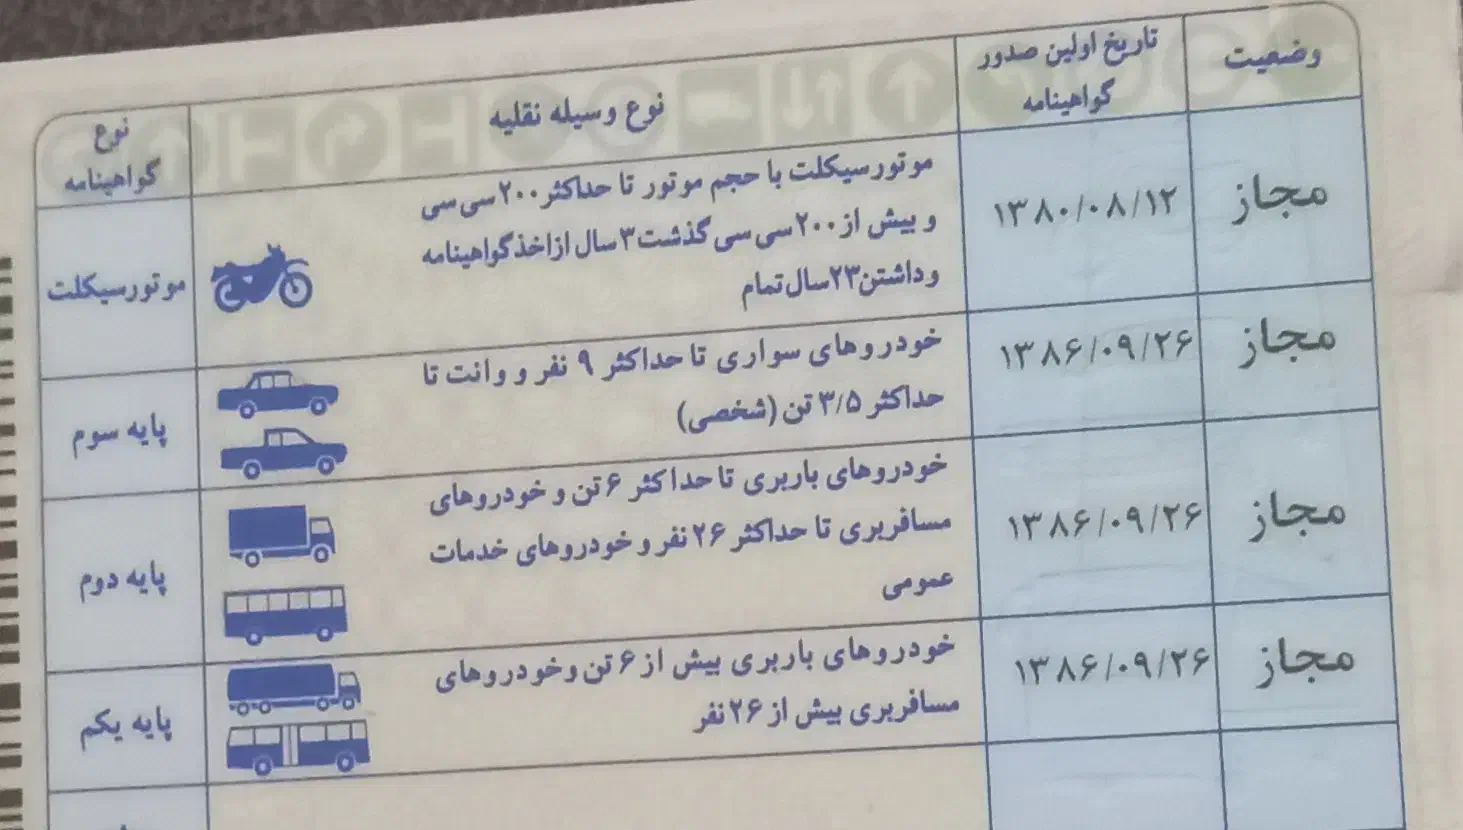 نوع
گواهینامه
نوع وسیله نقلیه
تاریخ اولین صدور
گواهینامه
وضعیت
موتورسیکلت
موتورسیکلت با حجم موتور تا حداکثر ۲۰۰ سی سی
و بیش از ۲۰۰ سی سی گذشت ۳ سال از اخذ گواهینامه
و داشتن ۲۳ سال تمام
۱۳۸۰/۰۸/۱۲
مجاز
پایه سوم
خودروهای سواری تا حداکثر ۹ نفر و وانت تا
حداکثر ۳/۵ تن (شخصی)
۱۳۸۶/۰۹/۲۶
مجاز
پایه دوم
خودروهای باربری تا حداکثر ۶ تن و خودروهای
مسافربری تا حداکثر ۲۶ نفر و خودروهای خدمات
عمومی
۱۳۸۶/۰۹/۲۶
مجاز
پایه یکم
خودروهای باربری بیش از ۶ تن و خودروهای
مسافربری بیش از ۲۶ نفر
۱۳۸۶/۰۹/۲۶
مجاز